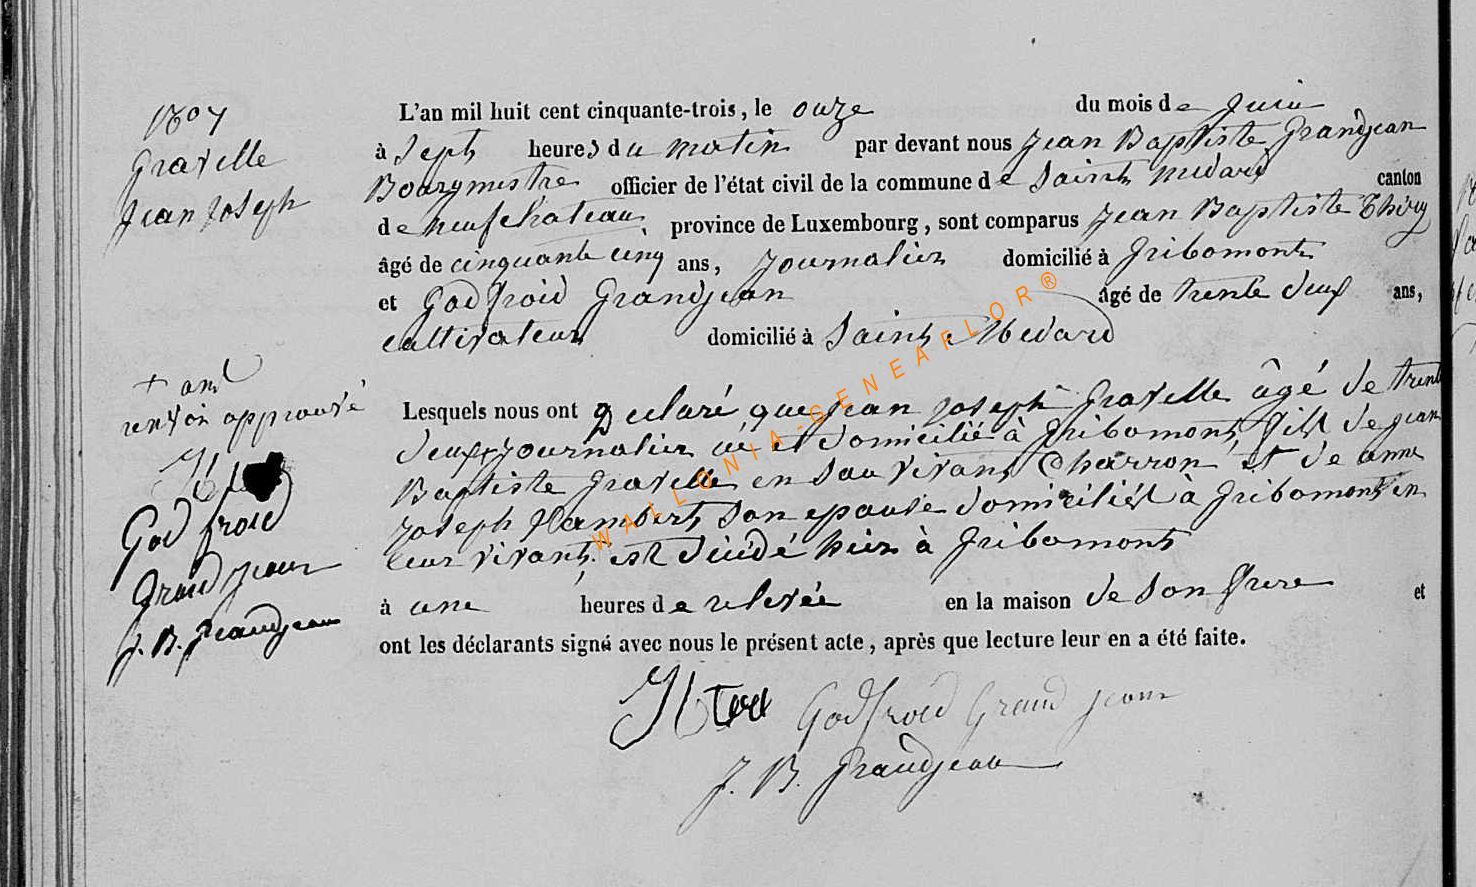 Gravelle
Jean Joseph
L'an mil huit cent cinquante-trois, le onze du mois de Juin
à Sept heures du matin par devant nous Jean Baptiste Grandjean
Bourgmestre officier de l'état civil de la commune de Saint Medard canton
de neufchateau province de Luxembourg, sont comparus Jean Baptiste Thiry
âgé de cinquante cinq ans, Journalier domicilié à Gribomont
et Godfroid Grandjean âgé de trente deux ans,
cultivateur domicilié à Saint Medard
+ ans
renvoi approuvé
Godfroid
Grandjean
J. B. Grandjean
Lesquels nous ont Déclaré que Jean Joseph Gravelle âgé de trente
deux + Journalier né et domicilié à Gribomont, fils de Jean
Baptiste Gravelle en Son vivant Charron et de anne
Joseph Lambert, Son epouse domiciliés à Gribomont en
leur vivant est décédé hier à Gribomont
à une heures de relevée en la maison de Son frere et
ont les déclarants signé avec nous le présent acte, après que lecture leur en a été faite.
Godfroid Grandjean
J. B. Grandjean
WALLONIA-GENEAFLOR®